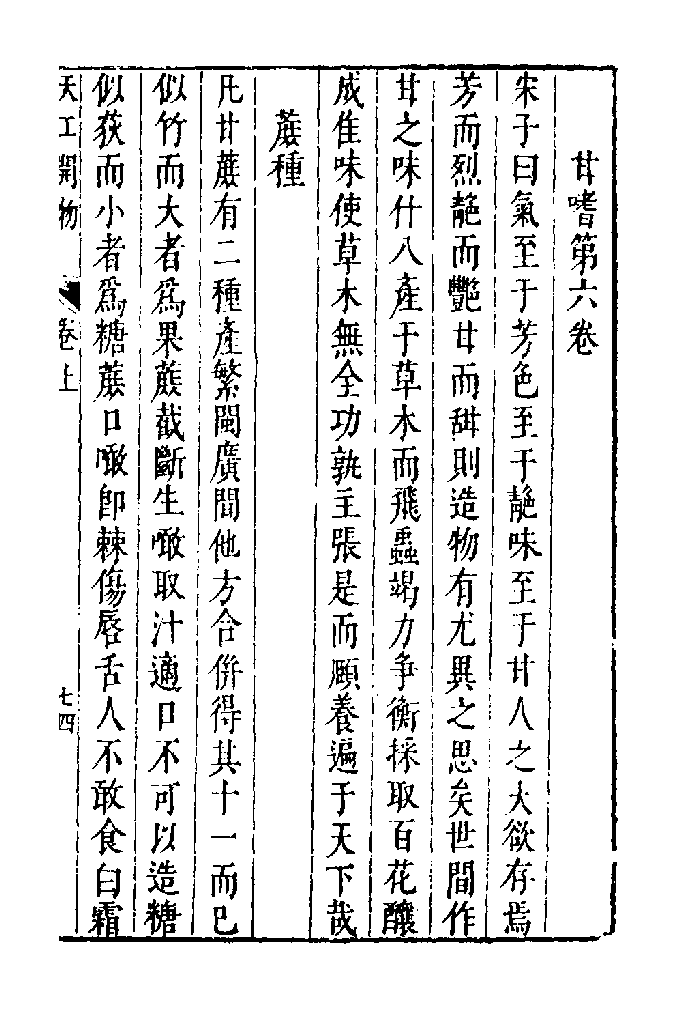 甘嗜第六卷
宋子曰氣至于芳色至于靘味至于甘人之大欲存焉
芳而烈靘而艷甘而甜則造物有尤異之思矣世間作
甘之味什八產于草木而飛蟲竭力爭衡採取百花釀
成佳味使草木無全功孰主張是而頤養遍于天下哉
蔗種
凡甘蔗有二種產繁閩廣間他方合併得其十一而已
似竹而大者爲果蔗截斷生噉取汁適口不可以造糖
似荻而小者爲糖蔗口噉即棘傷唇舌人不敢食白霜
天工開物
卷上
七四